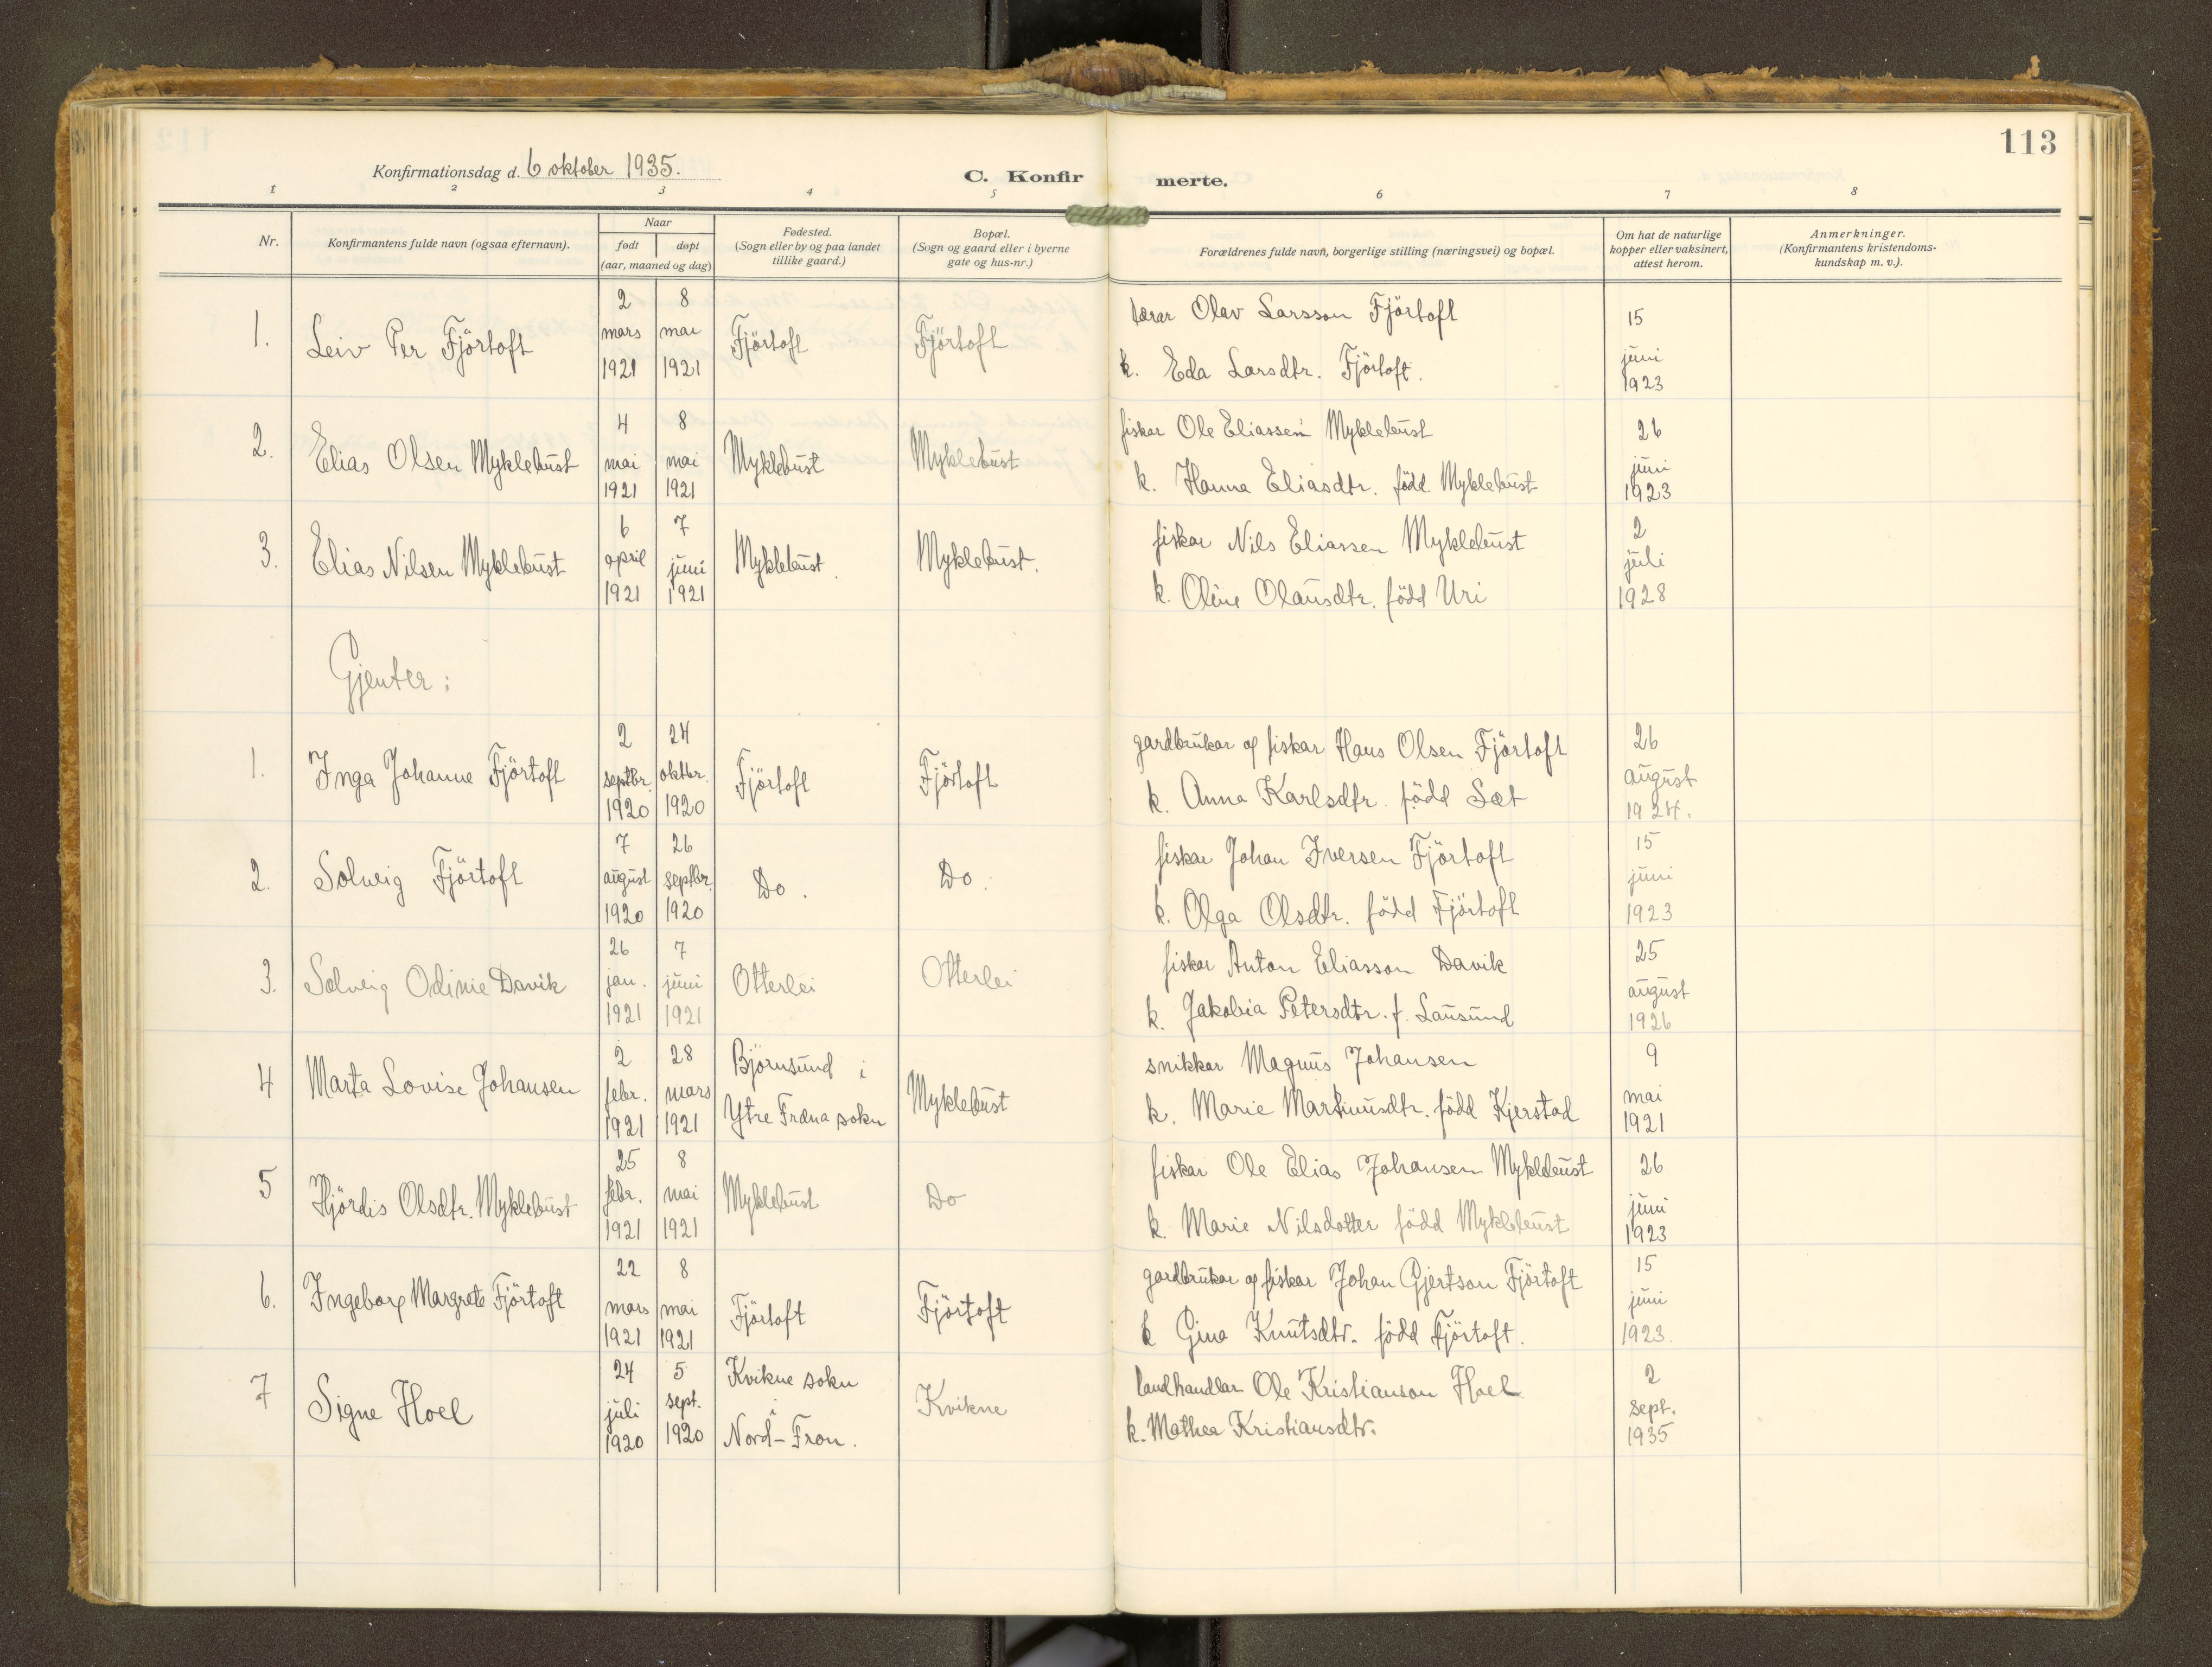 113
Konfirmationsdag d. 6 oktober 1935.
C. Konfir merte.
1 2 3 4 5 6 7 8
Nr.
Konfirmantens fulde navn (ogsaa efternavn).
Naar
født døpt
(aar, maaned og dag)
Fødested.
(Sogn eller by og paa landet
tillike gaard.)
Bopæl.
(Sogn og gaard eller i byerne
gate og hus-nr.)
Forældrenes fulde navn, borgerlige stilling (næringsvei) og bopæl.
Om hat de naturlige
kopper eller vaksinert,
attest herom.
Anmerkninger.
(Konfirmantens kristendoms-
kundskap m. v.).
1. Leiv Per Fjörtoft
2 mars 1921
8 mai 1921
Fjörtoft
Fjörtoft
lærar Olav Larsson Fjörtoft
k. Eda Larsdtr. Fjörtoft.
15 juni 1923
2. Elias Olsen Myklebust
4 mai 1921
8 mai 1921
Myklebust
Myklebust
fiskar Ole Eliassen Myklebust
k. Hanna Eliasdtr. född Myklebust
26 juni 1923
3. Elias Nilsen Myklebust
6 april 1921
7 juni 1921
Myklebust.
Myklebust.
fiskar Nils Eliassen Myklebust
k. Oline Olausdtr. född Uri
2 juli 1928
Gjenter:
1. Inga Johanne Fjörtoft
2 septbr. 1920
24 oktbr. 1920
Fjörtoft
Fjörtoft
gardbrukar og fiskar Hans Olsen Fjörtoft
k. Anna Karlsdtr. född Sæt
26 august 1924.
2. Solveig Fjörtoft
7 august 1920
26 septbr. 1920
Do.
Do.
fiskar Johan Iversen Fjörtoft
k. Olga Olsdtr. född Fjörtoft
15 juni 1923
3. Solveig Odinie Davik
26 jan. 1921
7 juni 1921
Otterlei
Otterlei
fiskar Anton Eliasson Davik
k. Jakobia Petersdtr. f. Lausund
25 august 1926
4 Marta Lovise Johansen
2 febr. 1921
28 mars 1921
Björnsund i
Ytre Fræna sokn
Myklebust
snikkar Magnus Johansen
k. Marie Martinusdtr. född Kjerstad
9 mai 1921
5 Hjördis Olsdtr. Myklebust
25 febr. 1921
8 mai 1921
Myklebust
Do
fiskar Ole Elias Johansen Myklebust
k. Marie Nilsdotter född Myklebust
26 juni 1923
6. Ingeborg Margrete Fjörtoft
22 mars 1921
8 mai 1921
Fjörtoft
Fjörtoft
gardbrukar og fiskar Johan Gjertson Fjörtoft
k Gina Knutsdtr. född Fjörtoft.
15 juni 1923.
7 Signe Hoel
24 juli 1920
5 sept. 1920
Kvikne sokn
i
Nord-Fron.
Kvikne
landhandlar Ole Kristianson Hoel
k. Mathea Kristiansdtr.
2 sept. 1935